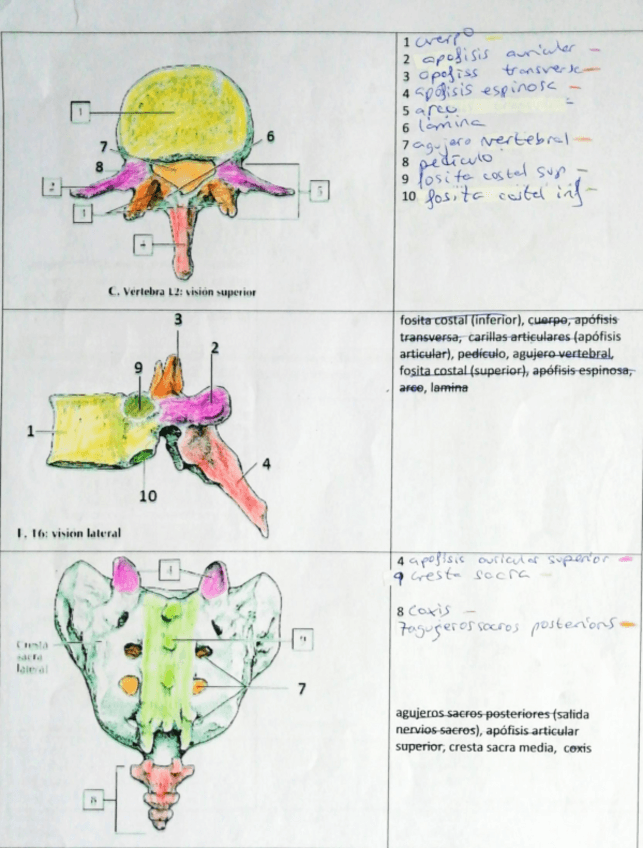 1 cuerpo
2 apofisis auricular
3 apofiss transversa
4 apófisis espinosa
5 arco
6 lamina
7 agujero vertebral
8 pedículo
9 fosita costal sup
10 fosita costal inf
1
7
6
8
2
5
3
4
C. Vértebra L2: visión superior
fosita costal (inferior), cuerpo, apófisis
transversa, carillas articulares (apófisis
articular), pedículo, agujero vertebral,
fosita costal (superior), apófisis espinosa,
arco, lamina
3
2
9
1
4
10
T6: visión lateral
4 apofisis auricular superior
9 cresta sacra
8 Coxis
7 agujeros sacros posteriores
4
Cresta
sacra
lateral
9
7
8
agujeros sacros posteriores (salida
nervios sacros), apófisis articular
superior, cresta sacra media, coxis